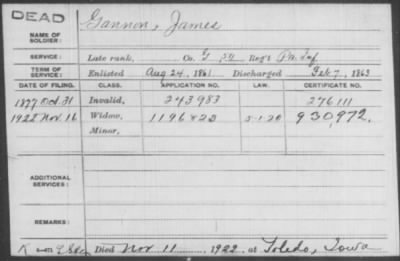 DEAD
NAME OF SOLDIER: Gannon, James
SERVICE: Late rank, Co. G, Reg't Pa. Inf.
TERM OF SERVICE: Enlisted Aug 24, 1861 Discharged Feb 7, 1863
DATE OF FILING. CLASS. APPLICATION NO. LAW. CERTIFICATE NO.
1877 Oct. 31 Invalid, 243983 276111
1922 Nov. 16 Widow, 1196423 5-1-20 930,972.
Minor,
ADDITIONAL SERVICES:
REMARKS:
Died Nov. 11 1922, at Toledo, Iowa